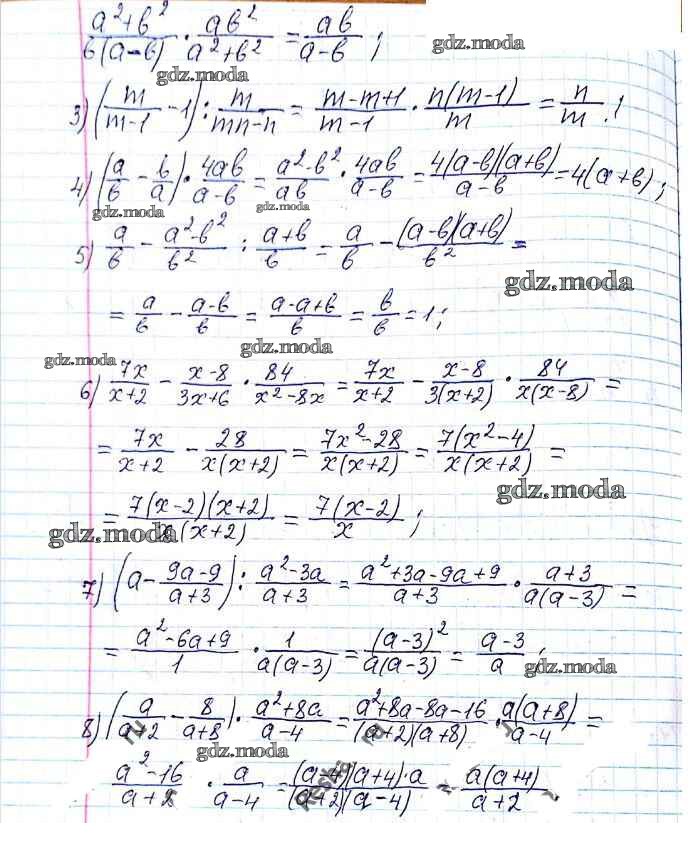 (a²+b²)/(b(a-b)) · (ab²)/(a²+b²) = (ab)/(a-b) ;
gdz.moda
gdz.moda
3) (m/(m-1) - 1) : m/(mn-n) = (m-m+1)/(m-1) · (n(m-1))/m = n/m . !
4) (a/b - b/a) · (4ab)/(a-b) = (a²-b²)/(ab) · (4ab)/(a-b) = (4(a-b)(a+b))/(a-b) = 4(a+b) ;
gdz.moda gdz.moda
5) a/b - (a²-b²)/b² : (a+b)/b = a/b - ((a-b)(a+b))/b² =
gdz.moda
= a/b - (a-b)/b = (a-a+b)/b = b/b = 1 ;
gdz.moda
gdz.moda
6) (7x)/(x+2) - (x-8)/(3x+6) · 84/(x²-8x) = (7x)/(x+2) - (x-8)/(3(x+2)) · 84/(x(x-8)) =
= (7x)/(x+2) - 28/(x(x+2)) = (7x²-28)/(x(x+2)) = (7(x²-4))/(x(x+2)) =
gdz.moda
= (7(x-2)(x+2))/(x(x+2)) = (7(x-2))/x ;
gdz.moda
7) (a - (9a-9)/(a+3)) : (a²-3a)/(a+3) = (a²+3a-9a+9)/(a+3) · (a+3)/(a(a-3)) =
= (a²-6a+9)/1 · 1/(a(a-3)) = (a-3)²/(a(a-3)) = (a-3)/a ;
gdz.moda
8) (a/(a+2) - 8/(a+8)) · (a²+8a)/(a-4) = (a²+8a-8a-16)/((a+2)(a+8)) · (a(a+8))/(a-4) =
gdz.moda
(a²-16)/(a+2) · a/(a-4) = ((a-4)(a+4)·a)/((a+2)(a-4)) = (a(a+4))/(a+2)